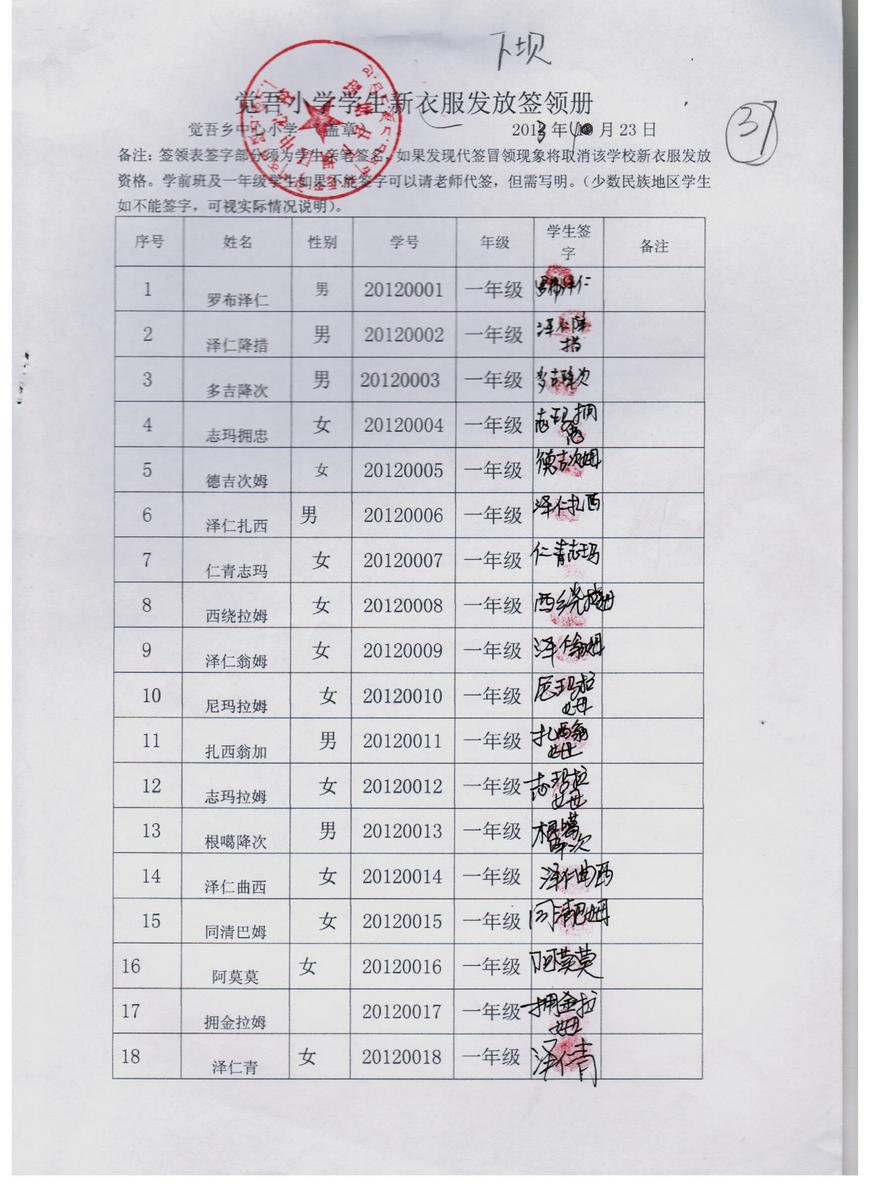 下坝
觉吾小学学生新衣服发放签领册
觉吾乡中心小学 盖章 2013年 月23日
37
备注：签领表签字部分须为学生亲笔签名，如果发现代签冒领现象将取消该学校新衣服发放
资格。学前班及一年级学生如果不能签字可以请老师代签，但需写明。（少数民族地区学生
如不能签字，可视实际情况说明）。
序号 姓名 性别 学号 年级 学生签字 备注
1 罗布泽仁 男 20120001 一年级 罗布泽仁
2 泽仁降措 男 20120002 一年级 泽仁降措
3 多吉降次 男 20120003 一年级 多吉降次
4 志玛拥忠 女 20120004 一年级 志玛拥忠
5 德吉次姆 女 20120005 一年级 德吉次姆
6 泽仁扎西 男 20120006 一年级 泽仁扎西
7 仁青志玛 女 20120007 一年级 仁青志玛
8 西绕拉姆 女 20120008 一年级 西绕拉姆
9 泽仁翁姆 女 20120009 一年级 泽仁翁姆
10 尼玛拉姆 女 20120010 一年级 尼玛拉姆
11 扎西翁加 男 20120011 一年级 扎西翁
12 志玛拉姆 女 20120012 一年级 志玛拉姆
13 根噶降次 男 20120013 一年级 根噶降次
14 泽仁曲西 女 20120014 一年级 泽仁曲西
15 同清巴姆 女 20120015 一年级 同清巴姆
16 阿莫莫 女 20120016 一年级 阿莫莫
17 拥金拉姆 20120017 一年级 拥金拉姆
18 泽仁青 女 20120018 一年级 泽仁青